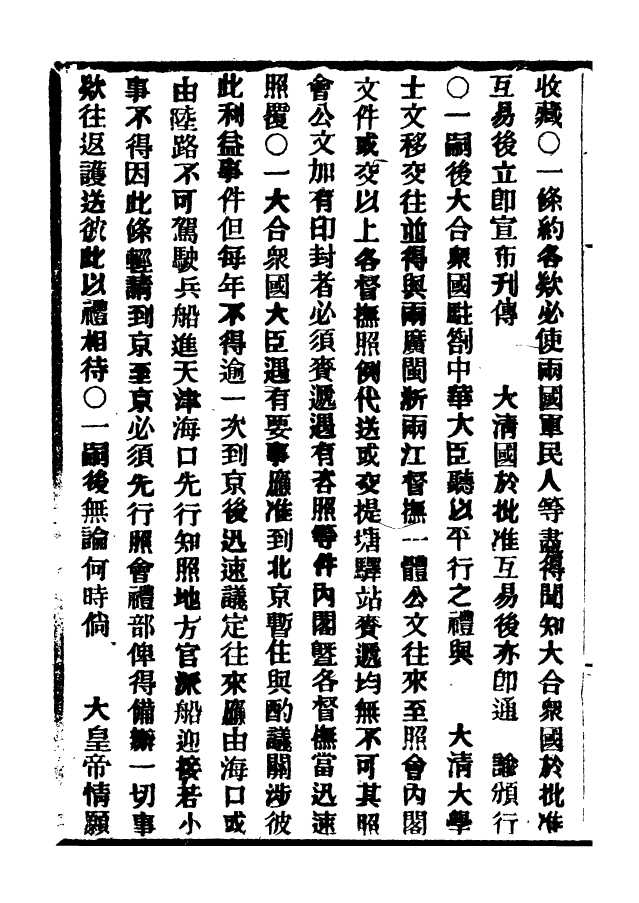 收藏〇一條約各欵必使兩國軍民人等盡得聞知大合衆國於批准
互易後立卽宣布刋傳　大淸國於批准互易後亦卽通　諭頒行
〇一嗣後大合衆國駐劄中華大臣聽以平行之禮與　大淸大學
士文移交往並得與兩廣閩浙兩江督撫一體公文往來至照會內閣
文件或交以上各督撫照例代送或交提塘驛站賫遞均無不可其照
會公文加有印封者必須賫遞遇有咨照等件內閣曁各督撫當迅速
照覆〇一大合衆國大臣遇有要事應准到北京暫住與酌議關涉彼
此利益事件但每年不得逾一次到京後迅速議定往來應由海口或
由陸路不可駕駛兵船進天津海口先行知照地方官派船迎接若小
事不得因此條輕請到京至京必須先行照會禮部俾得備辦一切事
欵往返護送彼此以禮相待〇一嗣後無論何時倘　大皇帝情願